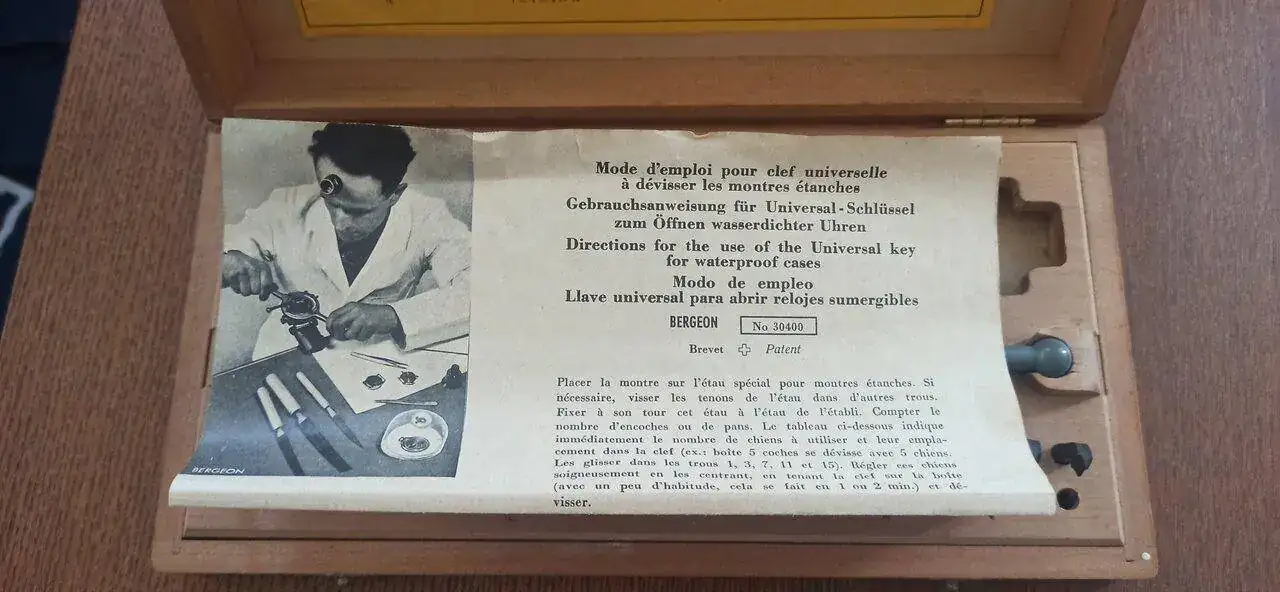 Mode d'emploi pour clef universelle
à dévisser les montres étanches
Gebrauchsanweisung für Universal-Schlüssel
zum Öffnen wasserdichter Uhren
Directions for the use of the Universal key
for waterproof cases
Modo de empleo
Llave universal para abrir relojes sumergibles
BERGEON No 30400
Brevet Patent
Placer la montre sur l'étau spécial pour montres étanches. Si
nécessaire, visser les tenons de l'étau dans d'autres trous.
Fixer à son tour cet étau à l'étau de l'établi. Compter le
nombre d'encoches ou de pans. Le tableau ci-dessous indique
immédiatement le nombre de chiens à utiliser et leur empla-
cement dans la clef (ex.: boîte 5 coches se dévisse avec 5 chiens.
Les glisser dans les trous 1, 3, 7, 11 et 15). Régler ces chiens
soigneusement en les centrant, en tenant la clef sur la boîte
(avec un peu d'habitude, cela se fait en 1 ou 2 min.) et dé-
visser.
BERGEON